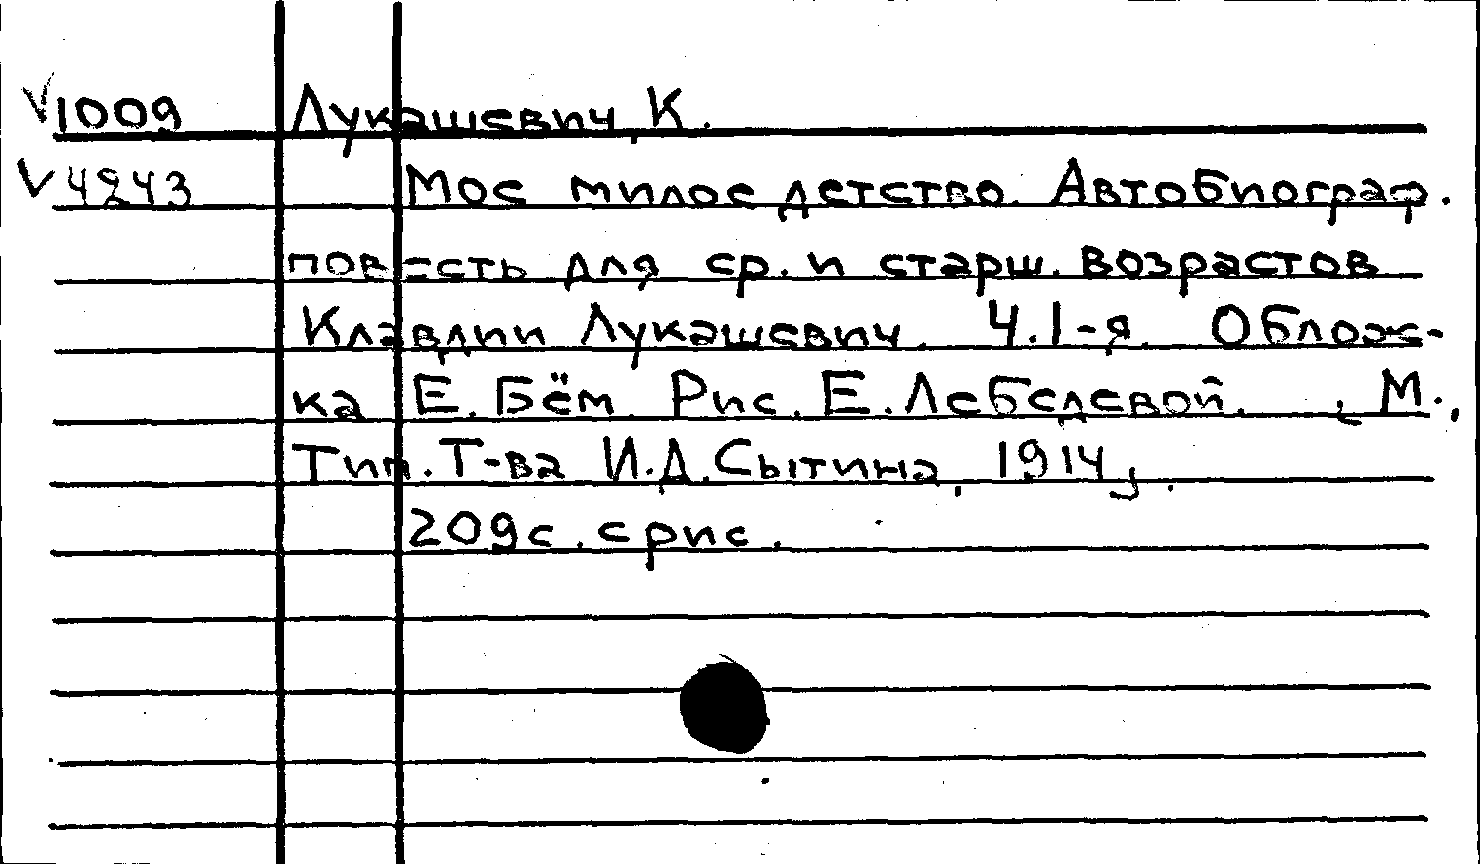 V 1009 Лукашевич, К.
V 4243 Мое милое детство. Автобиограф.
повесть для ср. и старш. возрастов
Клавдии Лукашевич. Ч. I-я. Облож-
ка Е. Бём. Рис. Е. Лебедевой. , М.,
Тип. Т-ва И.Д. Сытина, 1914,
209 с. с рис.